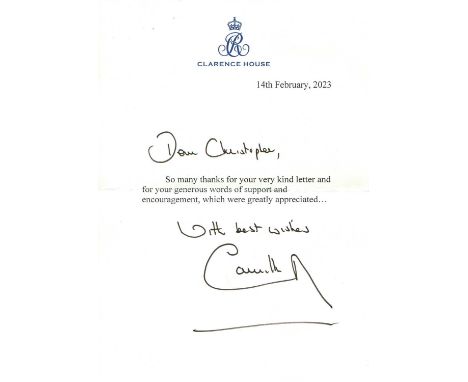 CLARENCE HOUSE
14th February, 2023
Dear Christopher,
So many thanks for your very kind letter and
for your generous words of support and
encouragement, which were greatly appreciated…
With best wishes
Camilla R